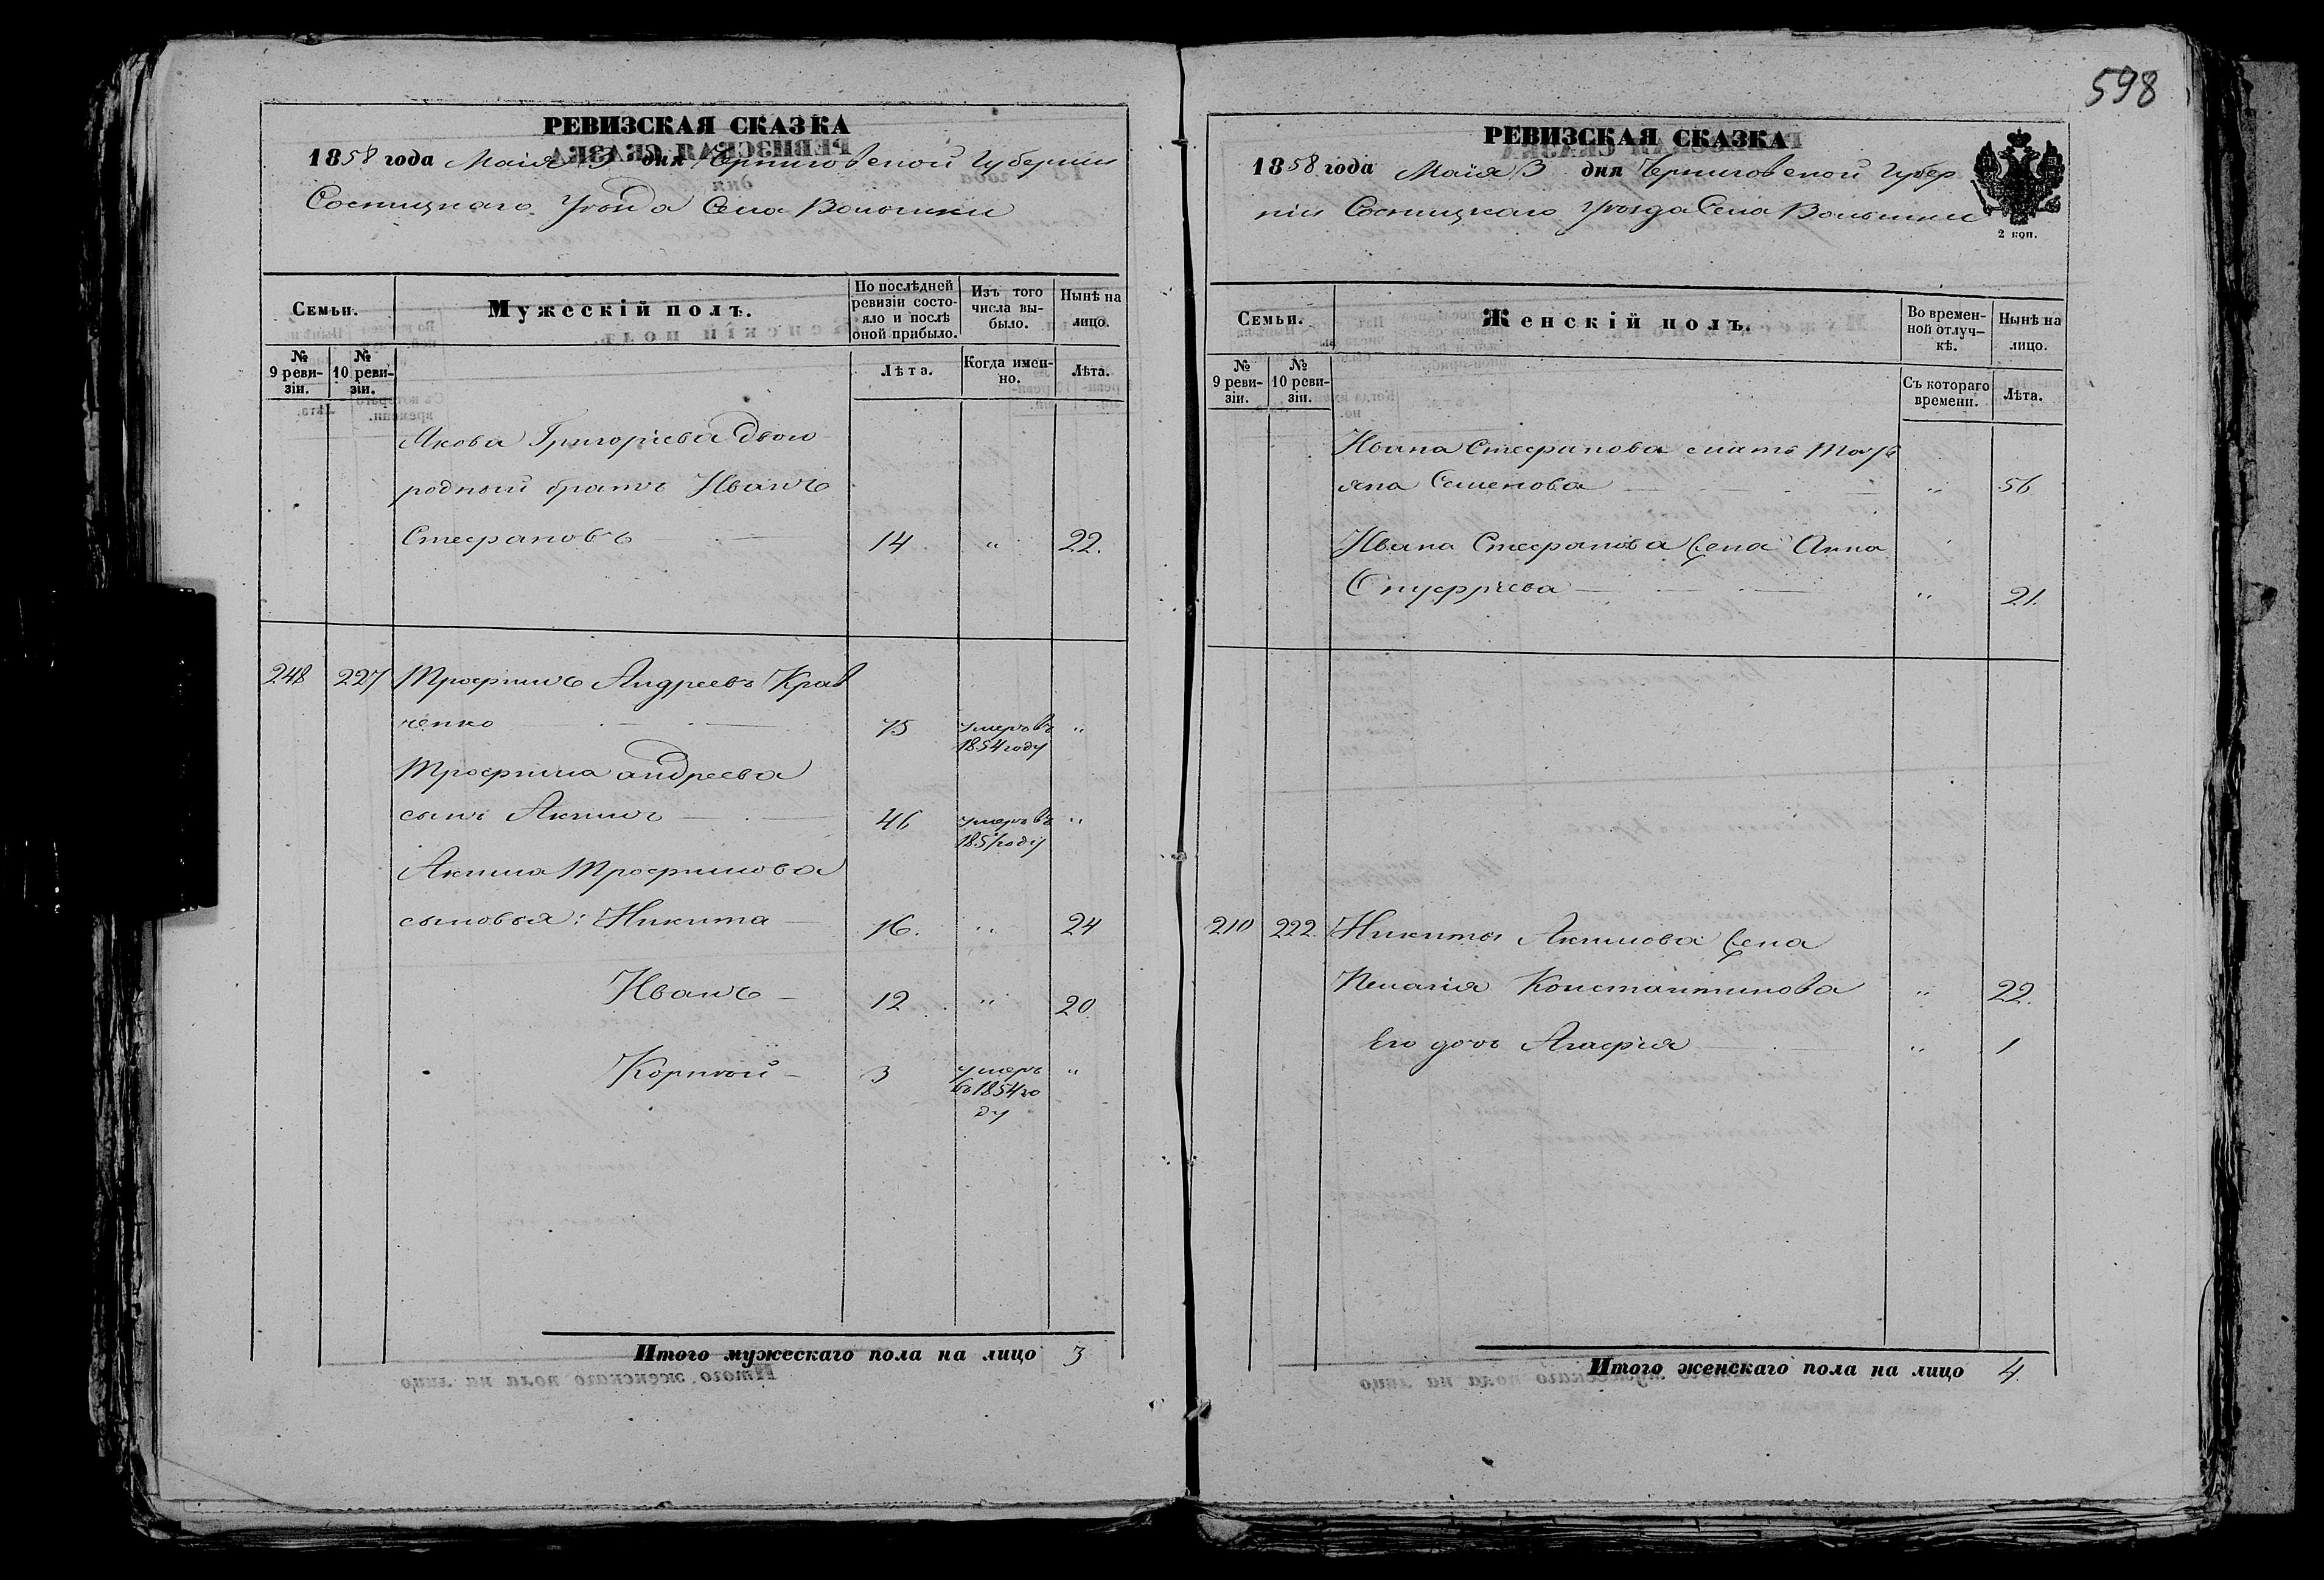 598
РЕВИЗСКАЯ СКАЗКА
1858 года Маія 3 дня Черниговской Губерніи
Сосницкаго Уѣзда Села Волынки
Семьи.
Мужескій полъ.
По послѣдней ревизіи состояло и послѣ оной прибыло.
Изъ того числа выбыло.
Нынѣ на лицо.
№ 9 ревизіи.
№ 10 ревизіи.
Лѣта.
Когда именно.
Лѣта.
Якова Григорьева двою
родный братъ Иванъ
Стефановъ 14 „ 22.
248 227 Трофимъ Андреевъ Крав
ченко 75 умеръ въ 1854 году „
Трофима андреева
сынъ Акимъ 46 умеръ въ 1851 году „
Акима Трофимова
сыновья: Никита 16. „ 24
Иванъ 12 „ 20
Корнѣй 3 умеръ въ 1854 го
ду „
Итого мужескаго пола на лицо 3
РЕВИЗСКАЯ СКАЗКА
1858 года Маія 3 дня Черниговской Губер
ніи Сосницкаго Уѣзда Села Волынки
2 коп.
Семьи.
Женскій полъ.
Во временной отлучкѣ.
Нынѣ на лицо.
№ 9 ревизіи.
№ 10 ревизіи.
Съ котораго времени.
Лѣта.
Ивана Стефанова мать
Семенова „ 56
Ивана Стефанова жена Анна
Онуфріева „ 21.
210 222. Никиты Акимова жена
Пелагія Константинова „ 22.
Его дочь Агафія „ 1
Итого женскаго пола на лицо 4.